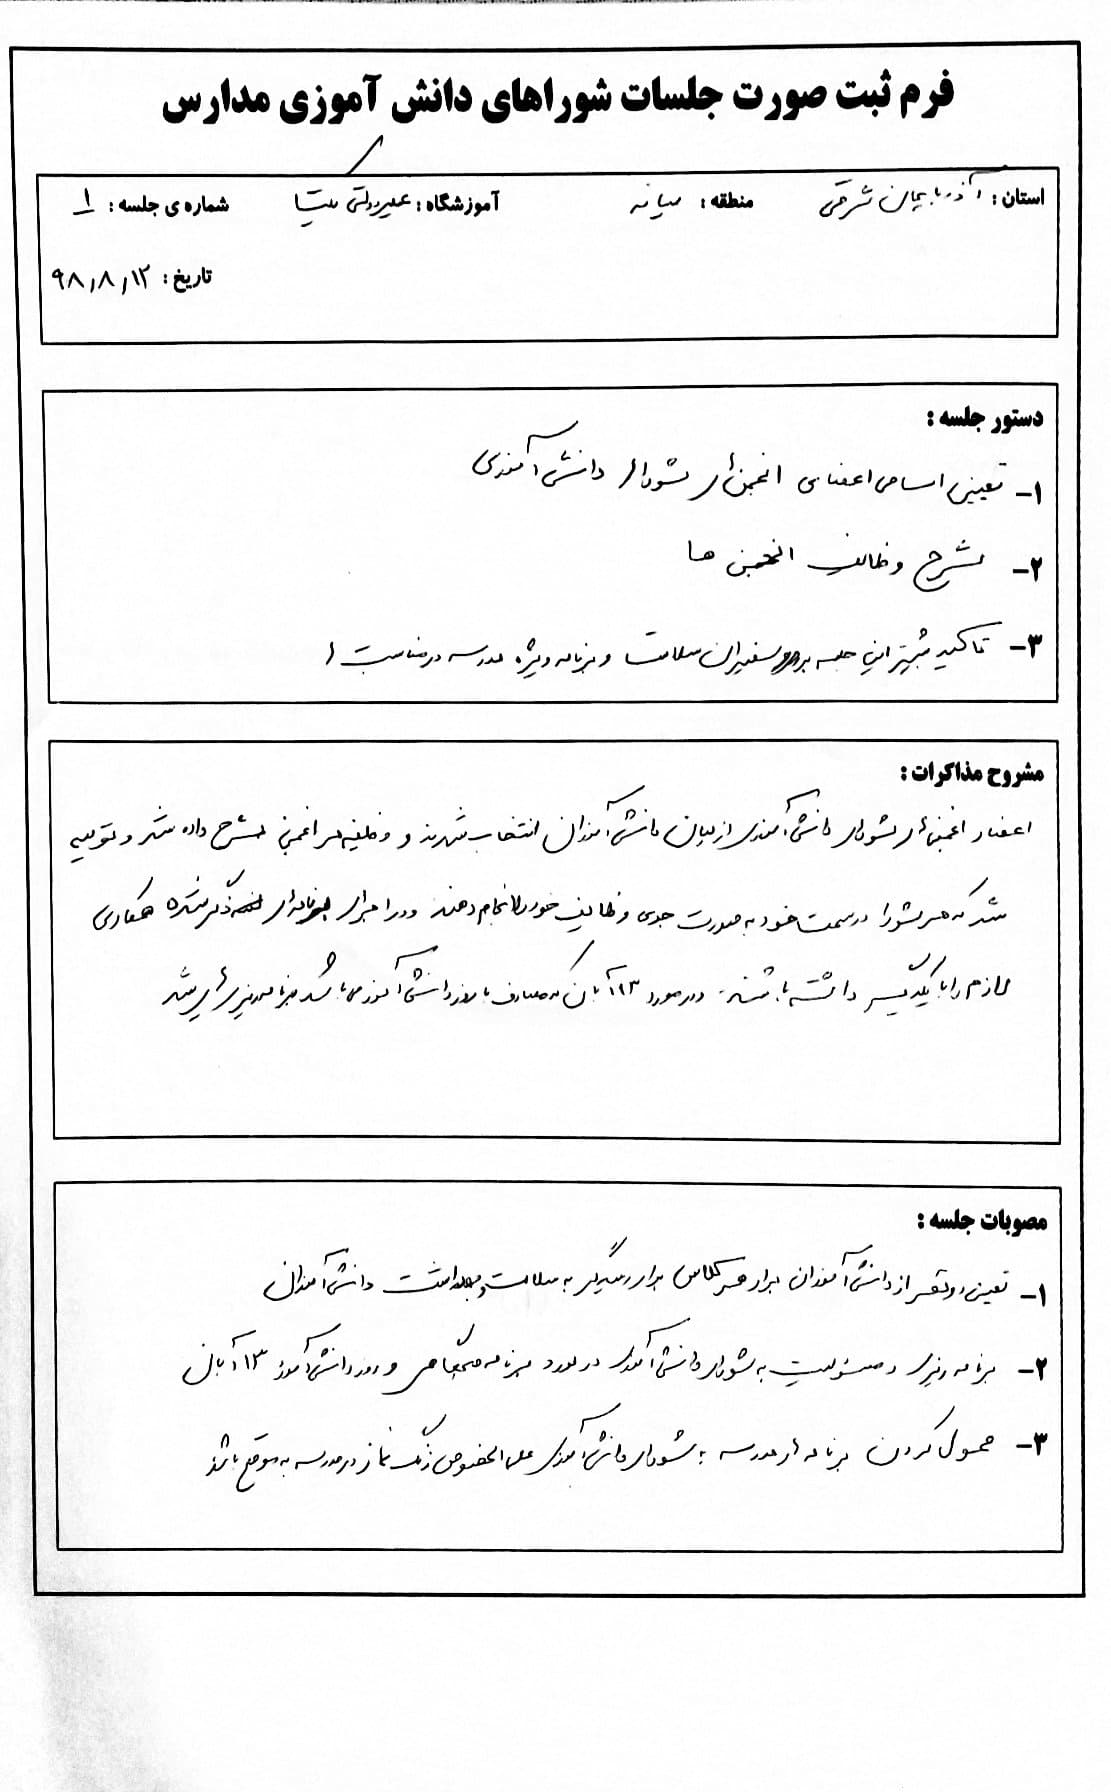 فرم ثبت صورت جلسات شوراهای دانش آموزی مدارس
استان : آذربایجان شرقی منطقه : میانه آموزشگاه : غیردولتی گیتا شماره ی جلسه : ۱
تاریخ : ۹۸/۸/۱۲
دستور جلسه :
۱- تعیین اسامی اعضای انجمن های شورای دانش آموزی
۲- شرح وظایف انجمن ها
۳- تاکید بیشتر این جلسه بر سفیران سلامت و برنامه ویژه مدرسه در مناسبت ها
مشروح مذاکرات :
اعضاء انجمن های شورای دانش آموزی از میان دانش آموزان انتخاب شدند و وظیفه هر انجمن شرح داده شد و توصیه
شد که هر شورا در سمت خود به صورت جدی وظایف خود را انجام دهند و در اجرای برنامه های ذکر شده همکاری
لازم را با یکدیگر داشته باشند. و در مورد ۱۳ آبان که مصادف با روز دانش آموز می باشد برنامه ریزی هایی شد
مصوبات جلسه :
۱- تعیین دو نفر از دانش آموزان برای هر کلاس برای رسیدگی به سلامت و بهداشت دانش آموزان
۲- برنامه ریزی و مسئولیت به شورای دانش آموزی در مورد برنامه صبحگاهی و روز دانش آموز ۱۳ آبان
۳- محول کردن برنامه های مدرسه به شورای دانش آموزی علی الخصوص زنگ نماز در مدرسه به موقع باشد